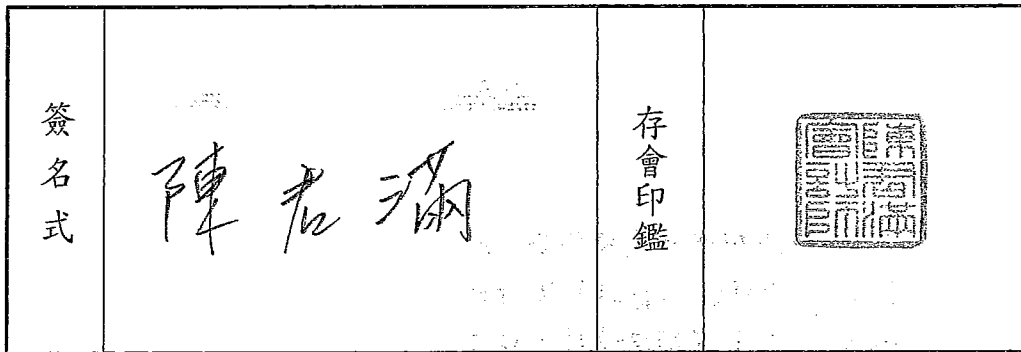 簽名式
陳君滿
存會印鑑
陳君滿
會計師